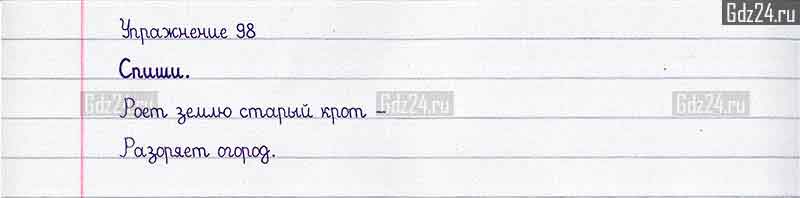 Gdz24.ru
Упражнение 98
Спиши.
Gdz24.ru Gdz24.ru Gdz24.ru
Роет землю старый крот –
Разоряет огород.